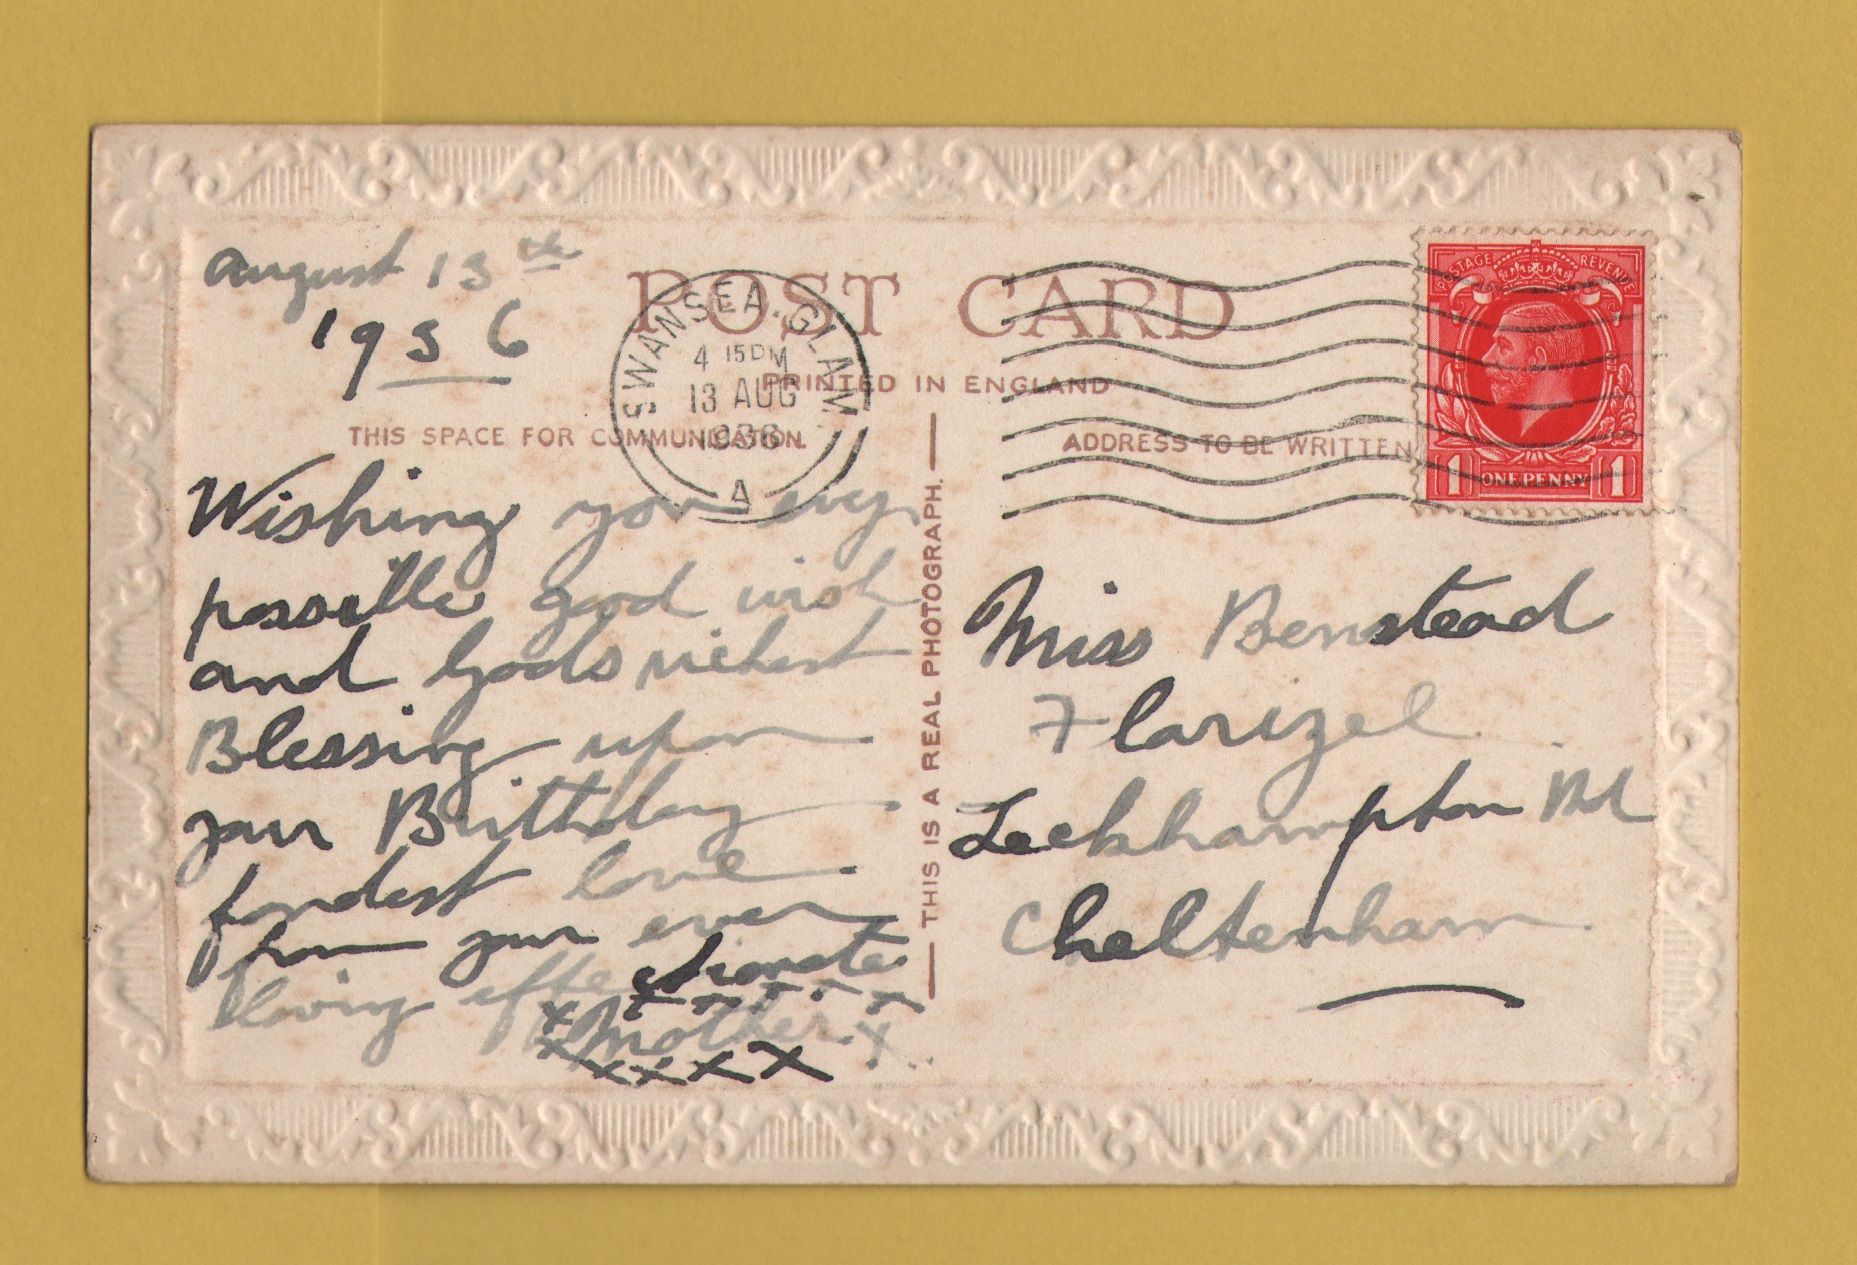 August 13th
1936
POST CARD
PRINTED IN ENGLAND
THIS SPACE FOR COMMUNICATION.
ADDRESS TO BE WRITTEN
SWANSEA. GLAM
4 15PM
13 AUG
1936
A
POSTAGE REVENUE
1 ONE PENNY 1
THIS IS A REAL PHOTOGRAPH.
Wishing you evry
possible good wish
and Gods richest
Blessing upon
your Birthday
fondest love
from your ever
loving affectionate
x Mother x
x x x x x x
Miss Benstead
Florizel
Leckhampton Rd
Cheltenham